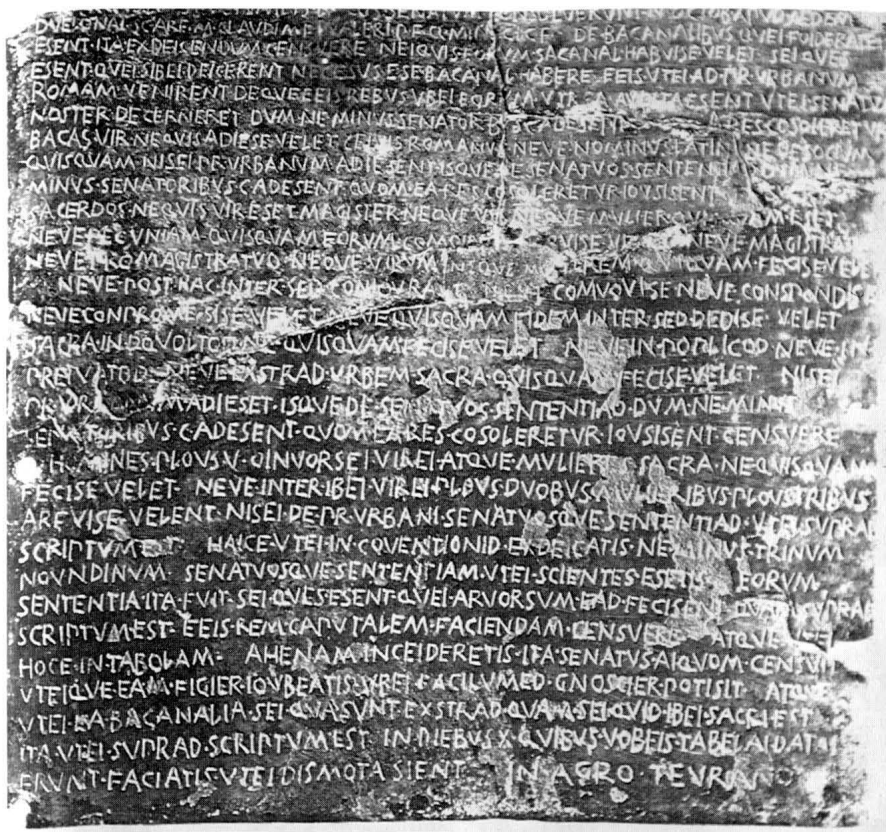 DVELONAI·SC·ARF·M·CLAVDI·M·F·L·VALERI·P·F·Q·MINVCI·C·F· DE·BACANALIBVS·QVEI·FOIDERATEI
ESENT·ITA·EXDEICENDVM·CENSVERE· NEIQVIS·EORVM·SACANAL·HABVISE·VELET· SEIQVES
ESENT·QVEI·SIBEI·DEICERENT· NECESVS·ESE·BACANAL·HABERE· EEIS·VTEI·AD·PR·VRBANVM
ROMAM·VENIRENT· DEQVE·EEIS·REBVS·VBEI·EORVM·VTR A·AVDITA·ESENT· VTEI·SENATVS
NOSTER·DECERNERET· DVM·NE·MINVS·SENATORBVS·C·ADESENT RES·COSOLERETVR
BACAS·VIR·NEQVIS·ADIESE·VELET· CEIVIS·ROMANVS·NEVE·NOMINVS·LATINI·NEVE·SOCIVM
QVISQVAM· NISEI·PR·VRBANVM·ADIESENT· ISQVE·DE·SENATVOS·SENTENTIAD·DVM·NE
MINVS·SENATORIBVS·C·ADESENT· QVOM·EA·RES·COSOLERETVR· IOVSISENT
SACERDOS·NEQVIS·VIR·ESET· MAGISTER·NEQVE·VIR·NEQVE·MVLIER·QVISQVAM·ESET
NEVE·PECVNIAM·QVISQVAM·EORVM·COMOINEM QVISE·VELET· NEVE·MAGISTRATVM
NEVE·PRO·MAGISTRATVO· NEQVE·VIRVM·NEQVE·MVLIEREM·QVIQVAM·FECISE·VELET
NEVE·POST·HAC·INTER·SED·CONIOVRASE NEVE·COMVOVISE· NEVE·CONSPONDISE
NEVE·CONPROMESISE·VELET· NEVE·QVISQVAM·FIDEM·INTER·SED·DEDISE·VELET
SACRA·IN·DQVOLTOD·NE·QVISQVAM·FECISE·VELET· NEVE·IN·POPLICOD·NEVE·IN
PREIVATOD· NEVE·EXSTRAD·VRBEM·SACRA·QVISQVAM·FECISE·VELET· NISEI
PR·VRBANVM·ADIESET· ISQVE·DE·SENATVOS·SENTENTIAD· DVM·NE·MINVS
SENATORIBVS·C·ADESENT· QVOM·EA·RES·COSOLERETVR· IOVSISENT· CENSVERE
HOMINES·PLOVS·V·OINVORSEI·VIREI·ATQVE·MVLIERES·SACRA·NE·QVISQVAM
FECISE·VELET· NEVE·INTER·IBEI·VIREI·PLOVS·DVOBVS·MVLIERIBVS·PLOVS·TRIBVS
ARFVISE·VELENT· NISEI·DE·PR·VRBANI·SENATVOSQVE·SENTENTIAD·VTEI·SVPRAD
SCRIPTVM·EST· HAICE·VTEI·IN·COVENTIONID·EXDEICATIS· NE·MINVS·TRINVM
NOVNDINVM· SENATVOSQVE·SENTENTIAM·VTEI·SCIENTES·ESETIS· EORVM
SENTENTIA·ITA·FVIT· SEI·QVES·ESENT·QVEI·ARVORSVM·EAD·FECISENT·QVAM·SVPRAD
SCRIPTVM·EST· EEIS·REM·CAPVTALEM·FACIENDAM·CENSVERE· ATQVE·VTEI
HOCE·IN·TABOLAM· AHENAM·INCEIDERETIS· ITA·SENATVS·AIQVOM·CENSVIT
VTEIQVE·EAM·FIGIER·IOVBEATIS·VBEI·FACILVMED·GNOSCIER·POTISIT· ATQVE
VTEI·EA·BACANALIA·SEI·QVA·SVNT·EXSTRAD·QVAM·SEI·QVID·IBEI·SACRI·EST
ITA·VTEI·SVPRAD·SCRIPTVM·EST· IN·DIEBVS·X·QVIBVS·VOBEIS·TABELAI·DATAI
ERVNT·FACIATIS·VTEI·DISMOTA·SIENT· IN·AGRO·TEVRANO